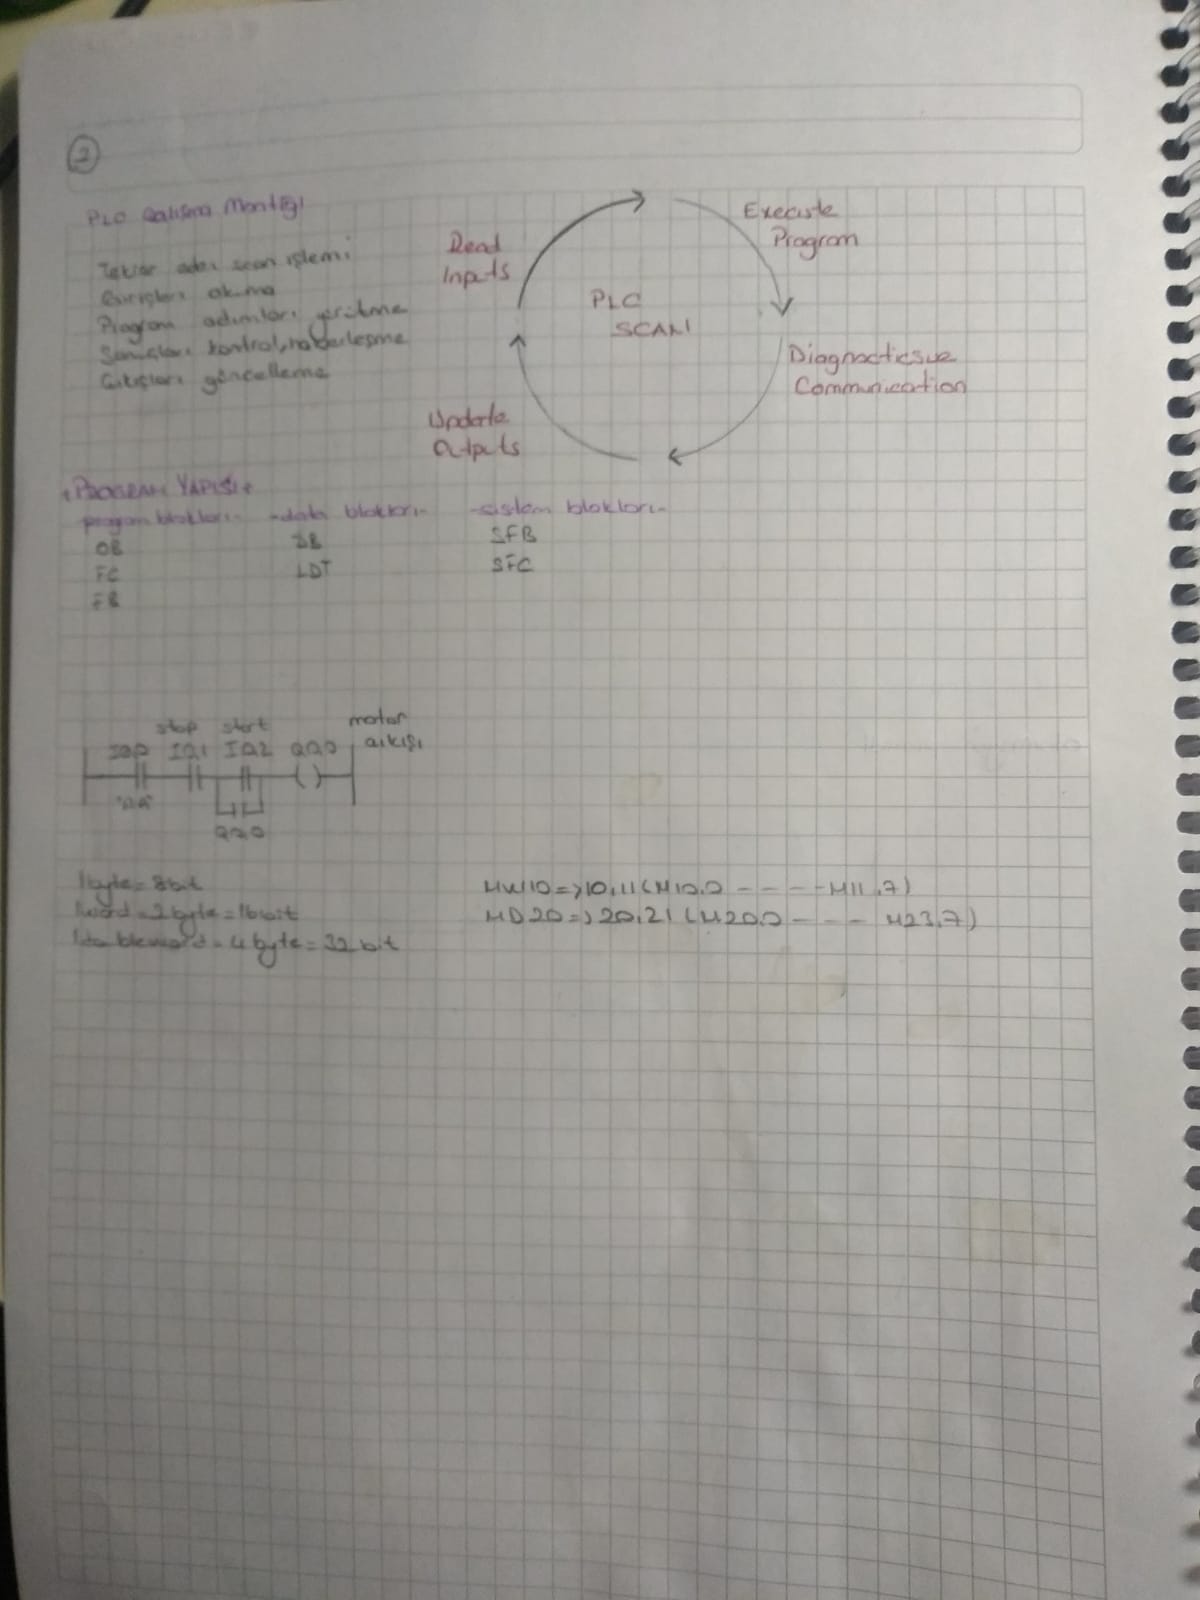 2
PLC Çalışma Mantığı
Tekrar eden scan işlemi
Girişleri okuma
Program adımları yürütme
Sonuçları kontrol, haberleşme
Çıkışları güncelleme
Read
Inputs
Execute
Program
PLC
SCAN
Diagnostics ve
Communication
Update
Outputs
PROGRAM YAPISI
program blokları - -data blokları- -sistem blokları-
OB DB SFB
FC LDT SFC
FB
stop start motor
I0.0 I0.1 I0.2 Q0.0 çıkışı
Q0.0
1byte = 8bit
1word = 2 byte = 16 bit
1doubleword = 4 byte = 32 bit
MW10 => 10,11 (M10.0 - - - - M11.7)
MD20 => 20,21 (M20.0 - - - M23.7)